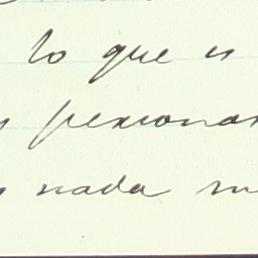 lo que es
personas
nada